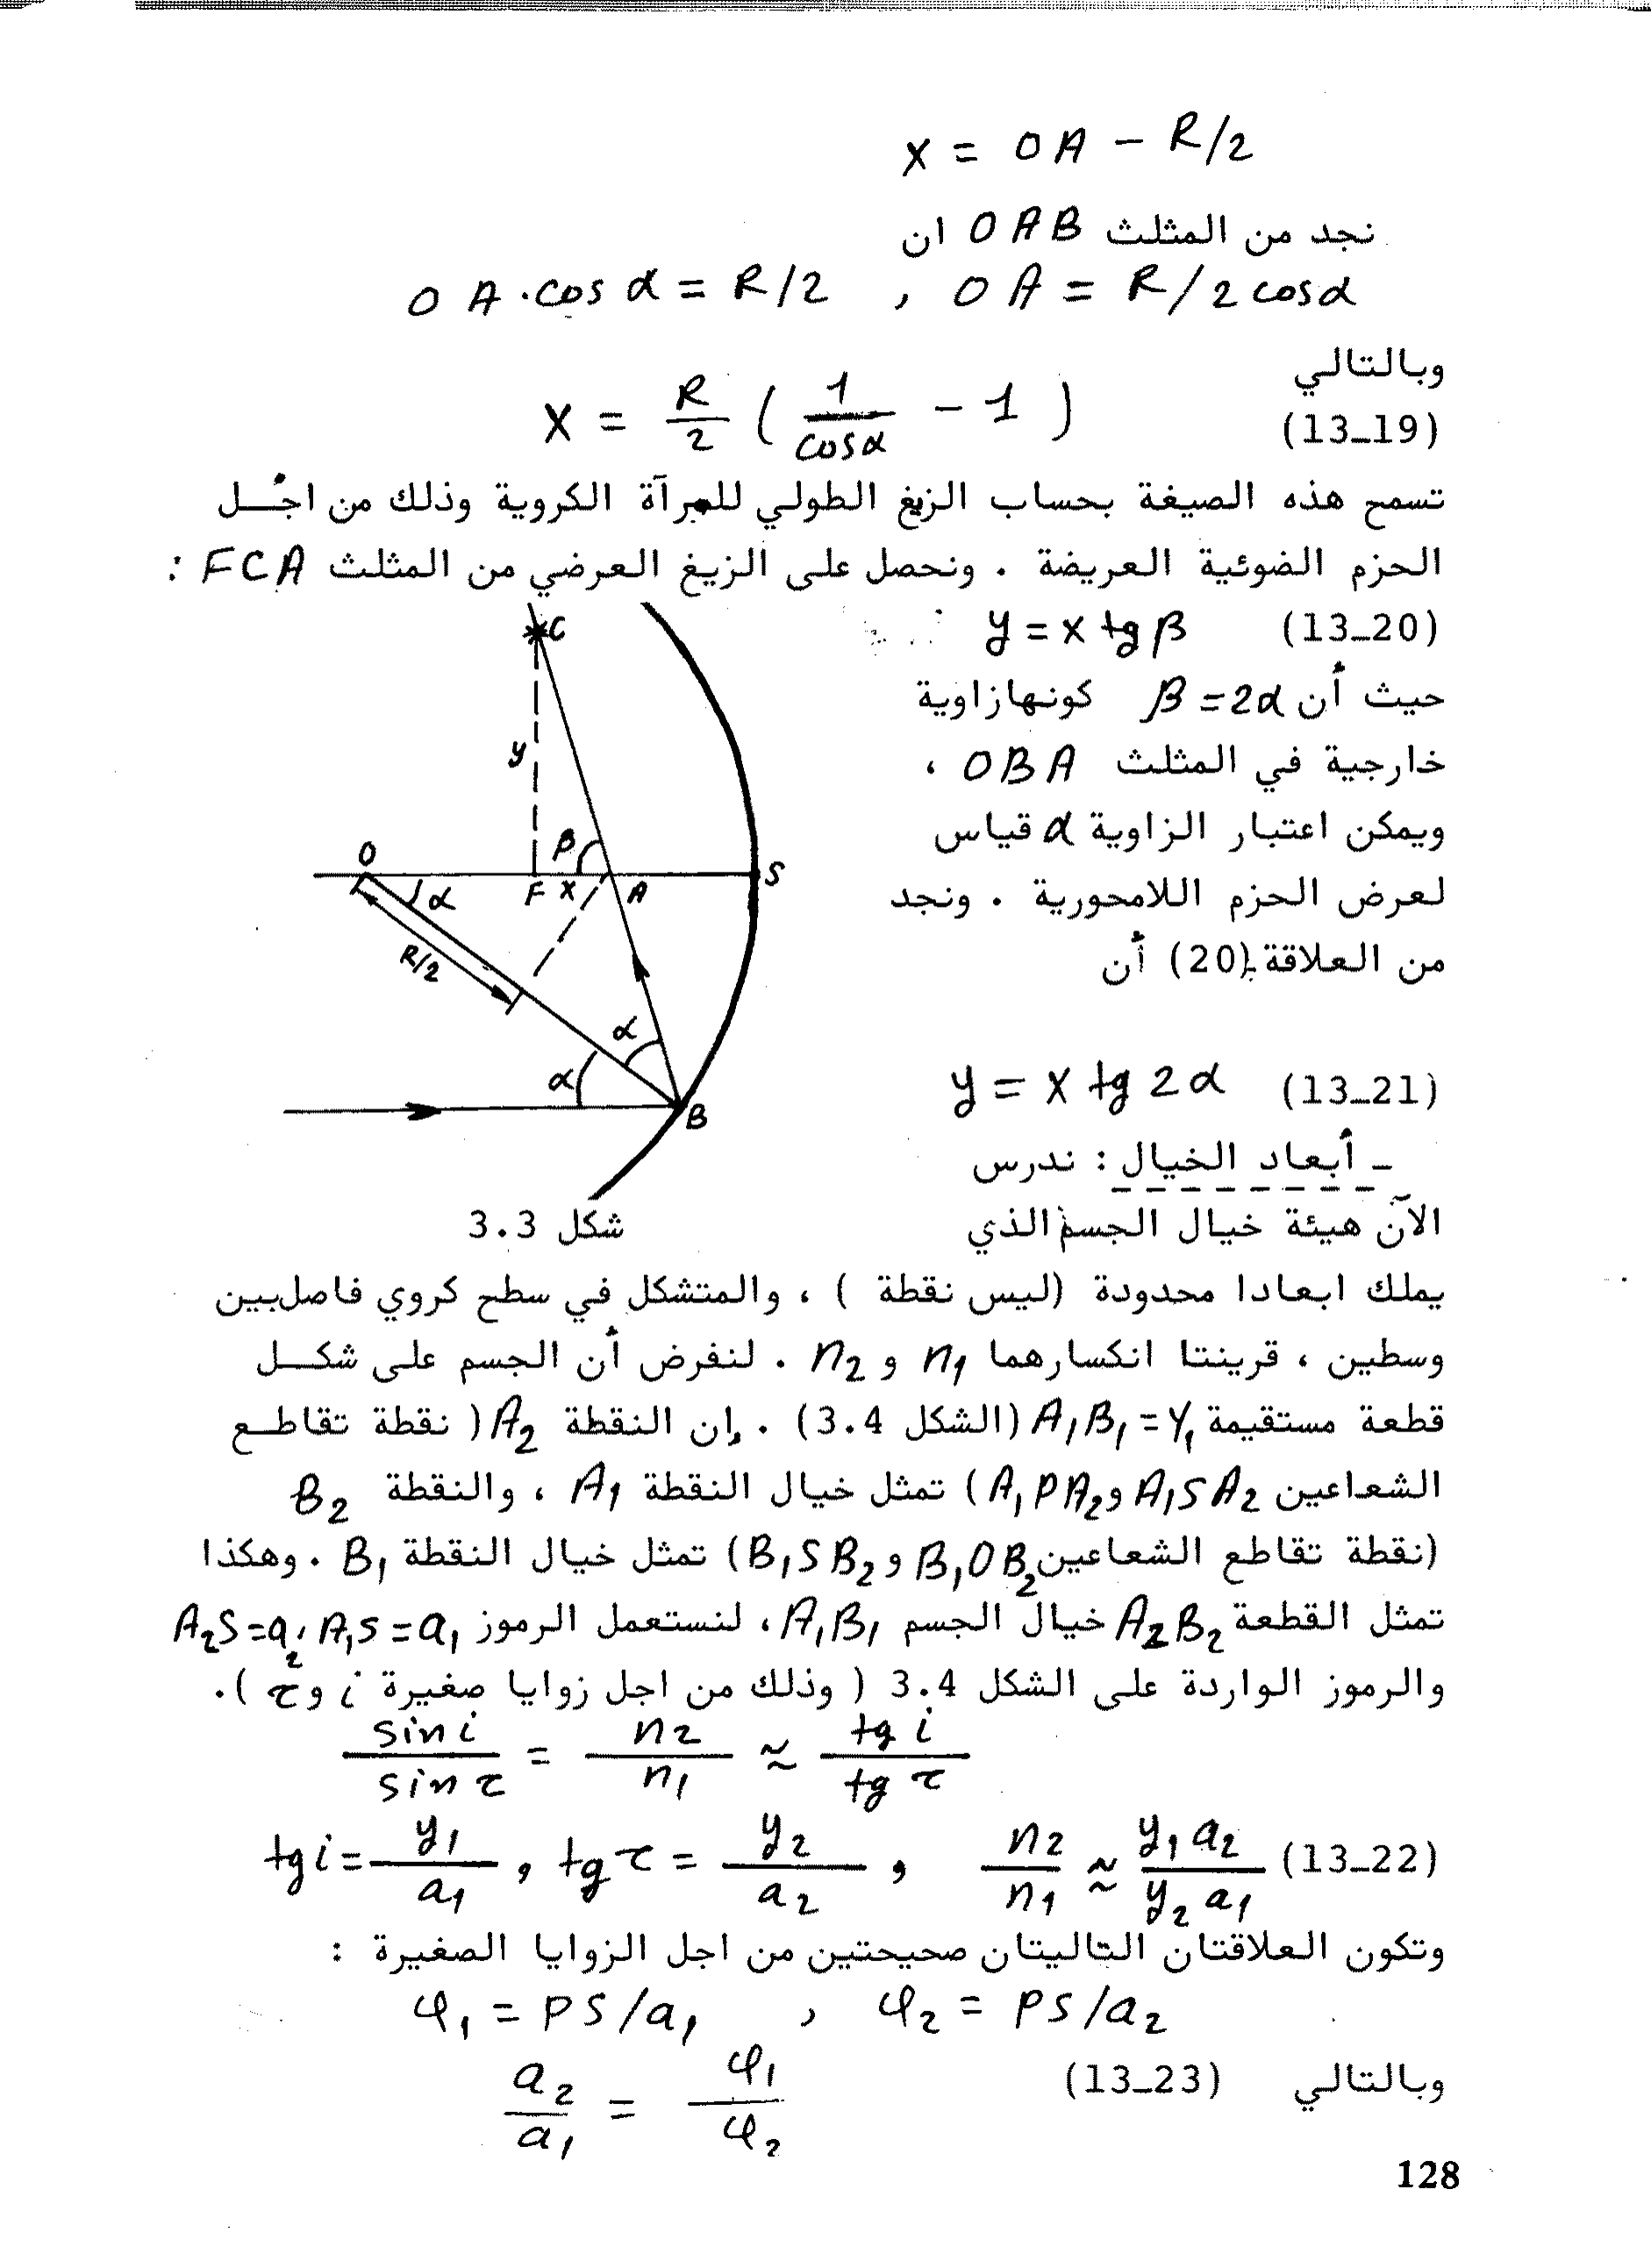 x = OA - R/2
نجد من المثلث OAB ان
OA.cos α = R/2 , OA = R/2cosα
وبالتالي
(13_19) x = R/2 (1/cosα - 1)
تسمح هذه الصيغة بحساب الزيغ الطولي للمرآة الكروية وذلك من اجـل
الحزم الضوئية العريضة . ونحصل على الزيغ العرضي من المثلث FCA :
(13_20) y = x tg β
حيث أن β = 2α كونهازاوية
خارجية في المثلث OBA ،
ويمكن اعتبار الزاوية α قياس
لعرض الحزم اللامحورية . ونجد
من العلاقة (20) أن
(13_21) y = x tg 2α
C
y
O
β
α
F x A
S
R/2
α
α
B
شكل 3.3
_ أبعاد الخيال : ندرس
الآن هيئة خيال الجسم الذي
يملك ابعادا محدودة (ليس نقطة ) ، والمتشكل في سطح كروي فاصل بين
وسطين ، قرينتا انكسارهما n₁ و n₂ . لنفرض أن الجسم على شكـل
قطعة مستقيمة A₁B₁=Y₁ (الشكل 3.4) . إن النقطة A₂ ( نقطة تقاطـع
الشعاعين A₁SA₂ و A₁PA₂) تمثل خيال النقطة A₁ ، والنقطة B₂
(نقطة تقاطع الشعاعين B₁OB₂ و B₁SB₂) تمثل خيال النقطة B₁ . وهكذا
تمثل القطعة A₂B₂ خيال الجسم A₁B₁ ، لنستعمل الرموز A₁S=a₁ ، A₂S=a₂
والرموز الواردة على الشكل 3.4 ( وذلك من اجل زوايا صغيرة i و τ ).
sin i / sin τ = n₂/n₁ ≈ tg i / tg τ
tg i = y₁/a₁ , tg τ = y₂/a₂ , n₂/n₁ ≈ y₁a₂/y₂a₁ (13_22)
وتكون العلاقتان التاليتان صحيحتين من اجل الزوايا الصغيرة :
φ₁ = PS/a₁ , φ₂ = PS/a₂
وبالتالي (13_23) a₂/a₁ = φ₁/φ₂
128